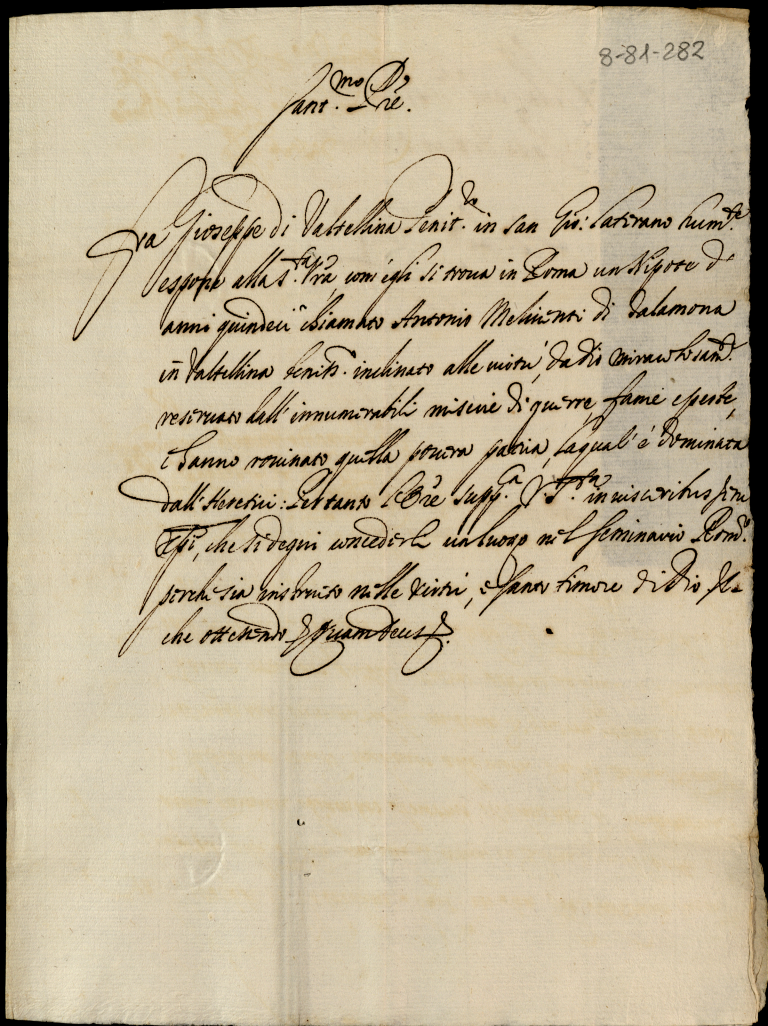 8-81-282
Sant.mo Pre.
Fra Gioseppe di Valtellina Penit.re in san Gio: Laterano hum.te
espone alla S.ta Vra, com' egli si troua in Roma un Nipote d'
anni quindeci chiamato Antonio di Talamona
in Valtellina inclinato alle uirtù, da Dio miracolosam.te
reseruato dall' innumerabili miserie di guerre, fame e peste,
c'hanno rouinato quella pouera patria, laqual' è dominata
dall' Heretici: Pertanto l'Ore supp.ca V. S.ta in uisceribus
Xpi, che si degni concederli un luogo nel Seminario Rom.o
perche sia instrutto nelle virtù, e santo timore di Dio Il
che ottenendo Quam Deus